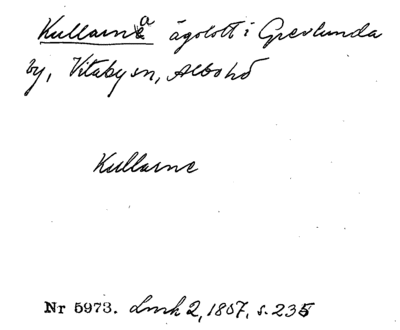 Kullarna ägolott i Grevlunda
by, Vitaby sn, Albo hd
Kullarne
Nr 5973. Lmk 2, 1807, s. 235